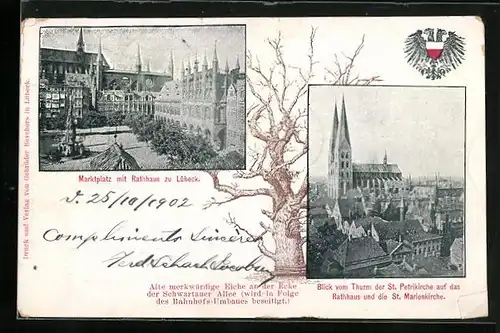 Marktplatz mit Rathhaus zu Lübeck.
25/10/1902
Compliments
Alte merkwürdige Eiche an der Ecke
der Schwartauer Allee (wird in Folge
des Bahnhofs-Umbaues beseitigt.)
Blick vom Thurm der St. Petrikirche auf das
Rathhaus und die St. Marienkirche.
Druck und Verlag von Gebrüder Borchers in Lübeck.